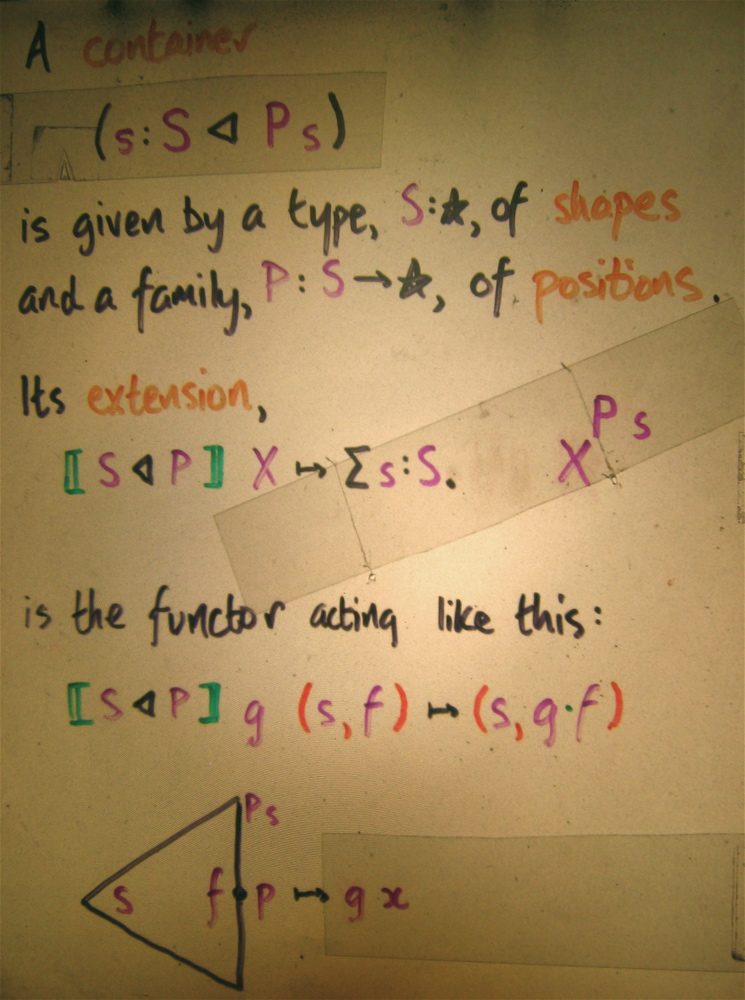 A container
(s:S ◁ P s)
is given by a type, S:★, of shapes
and a family, P:S→★, of positions.
Its extension,
⟦S ◁ P⟧ X ↦ Σ s:S. X^{P s}
is the functor acting like this:
⟦S ◁ P⟧ g (s, f) ↦ (s, g·f)
P s
s f p ↦ g x